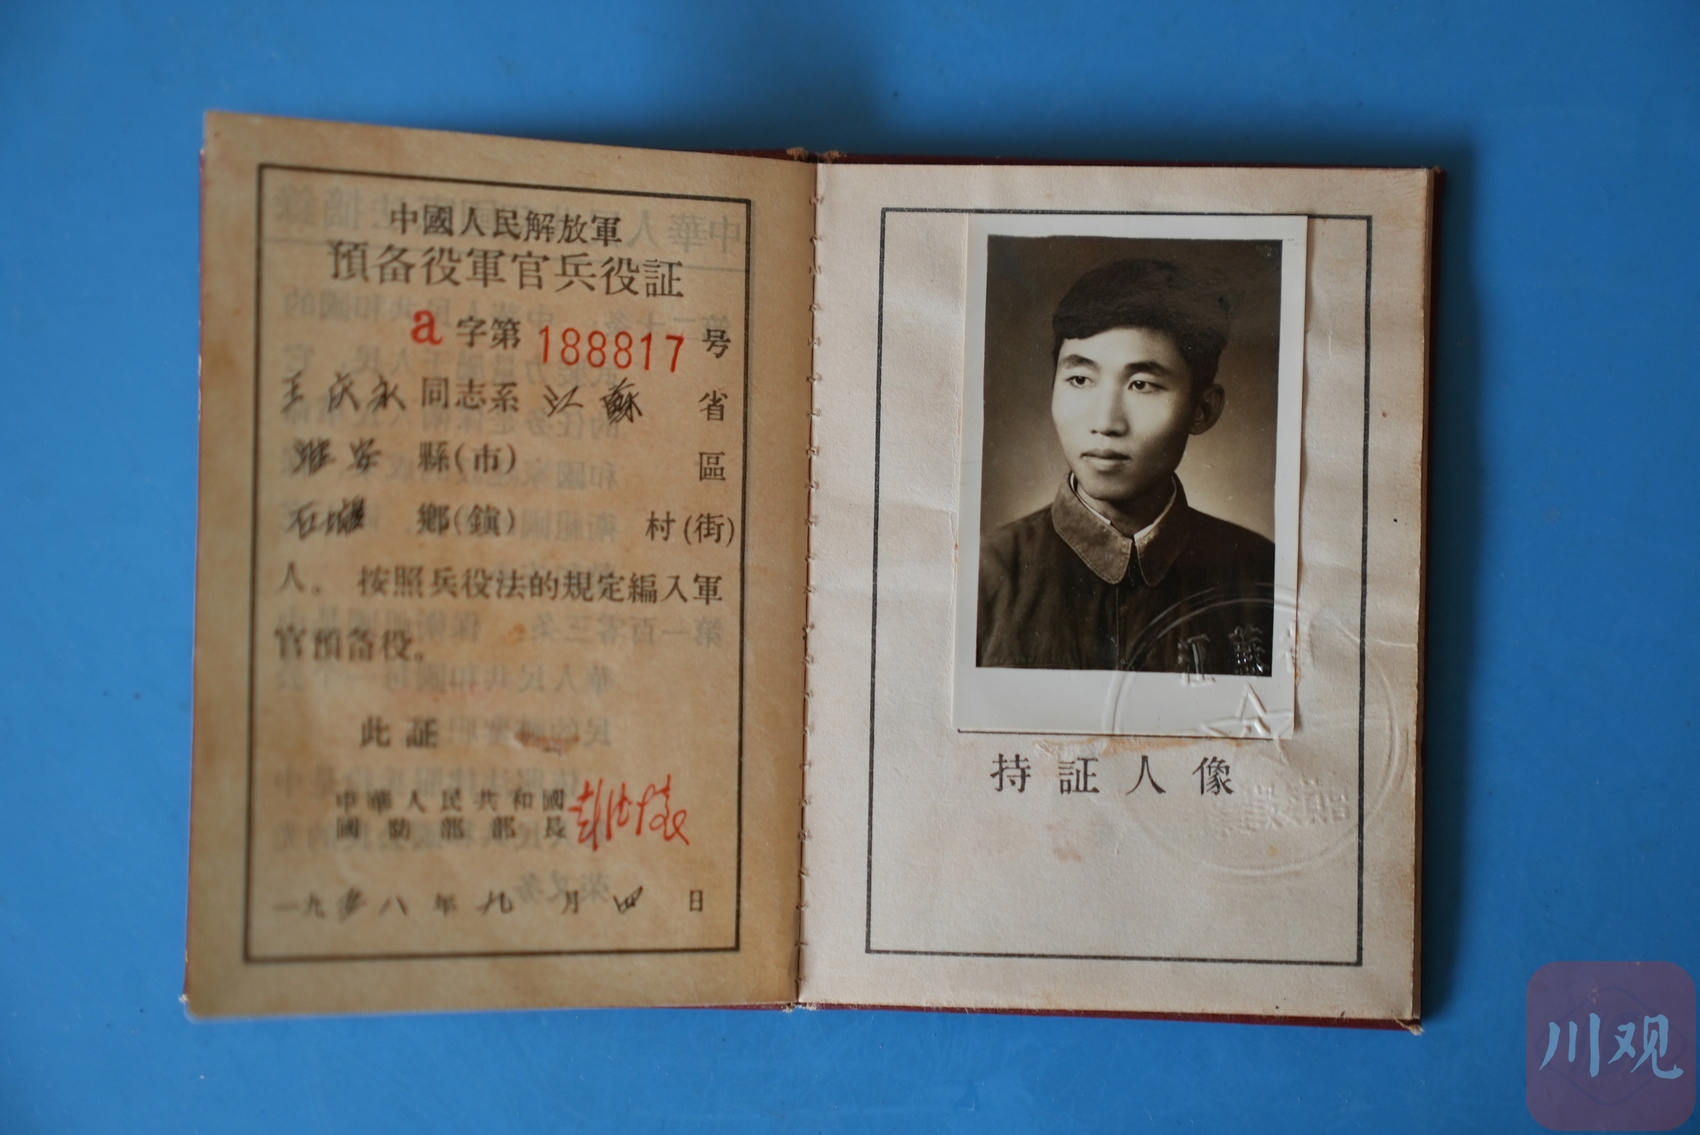 中國人民解放軍
預备役軍官兵役証
a 字第 188817 号
王庆永 同志系 江蘇 省
淮安 縣(市) 區
石塘 鄉(鎮) 村(街)
人。按照兵役法的規定編入軍
官預备役。
此証
中華人民共和國
國防部部長 彭德懷
一九五八年九月四日
持証人像
江蘇省
川观